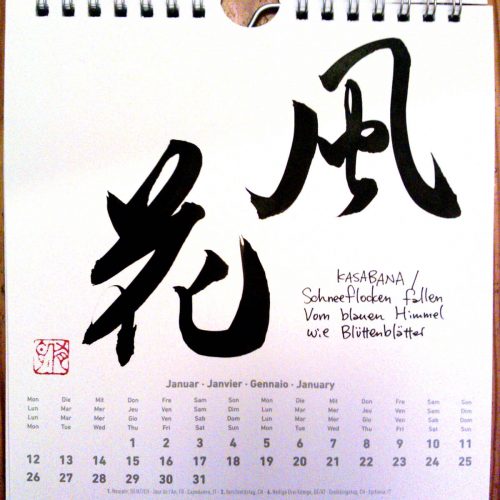 風花
KASABANA /
Schneeflocken fallen
Vom blauen Himmel
wie Blüttenblätter
Januar · Janvier · Gennaio · January
Mon Die Mit Don Fre Sam Son Mon Die Mit Don Fre Sam Son
Lun Mar Mer Jeu Ven Sam Dim Lun Mar Mer Jeu Ven Sam Dim
Lun Mar Mer Gio Ven Sab Dom Lun Mar Mer Gio Ven Sab Dom
Mon Tue Wed Thu Fri Sat Sun Mon Tue Wed Thu Fri Sat Sun
1 2 3 4 5 6 7 8 9 10 11
12 13 14 15 16 17 18 19 20 21 22 23 24 25
26 27 28 29 30 31
1. Neujahr, DE/AT/CH · Jour de l'An, FR · Capodanno, IT · 2. Berchtoldstag, CH · 6. Heilige Drei Könige, DE/AT · Dreikönigstag, CH · Epifania, IT